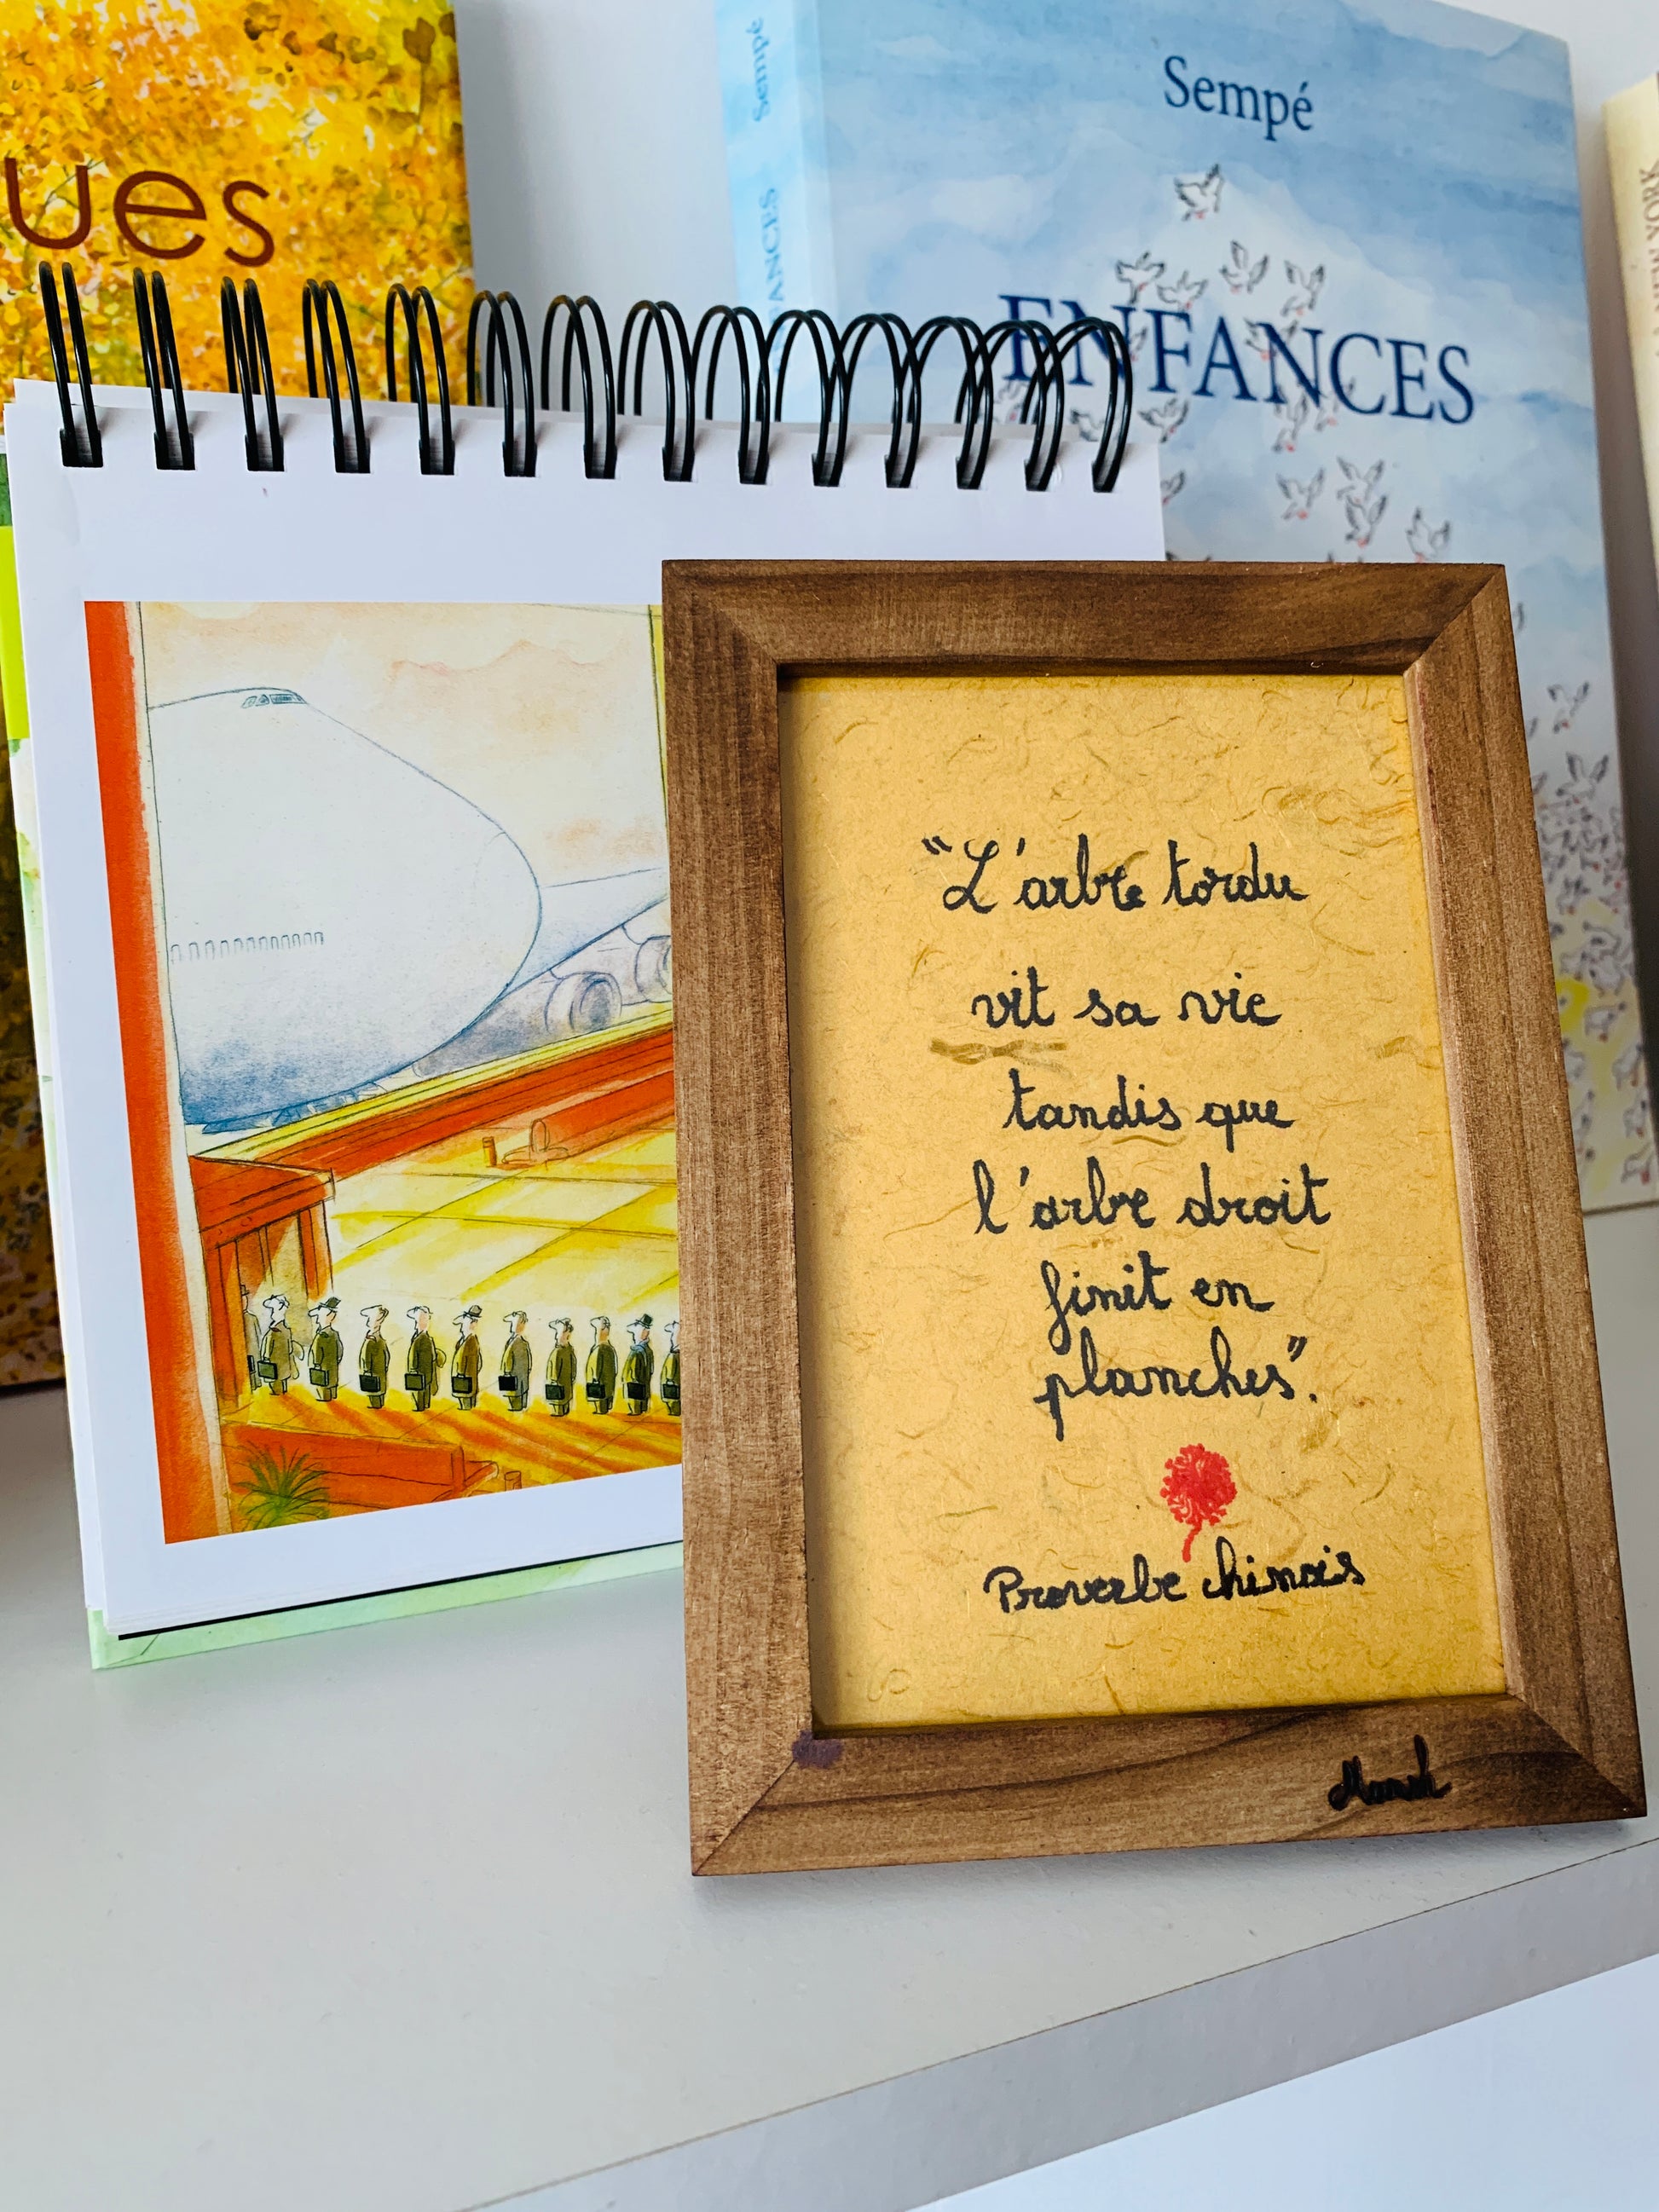 ues
Sempé
ENFANCES
Sempé
ENFANCES
YORK
"L'arbre tordu
vit sa vie
tandis que
l'arbre droit
finit en
planches".
Proverbe chinois